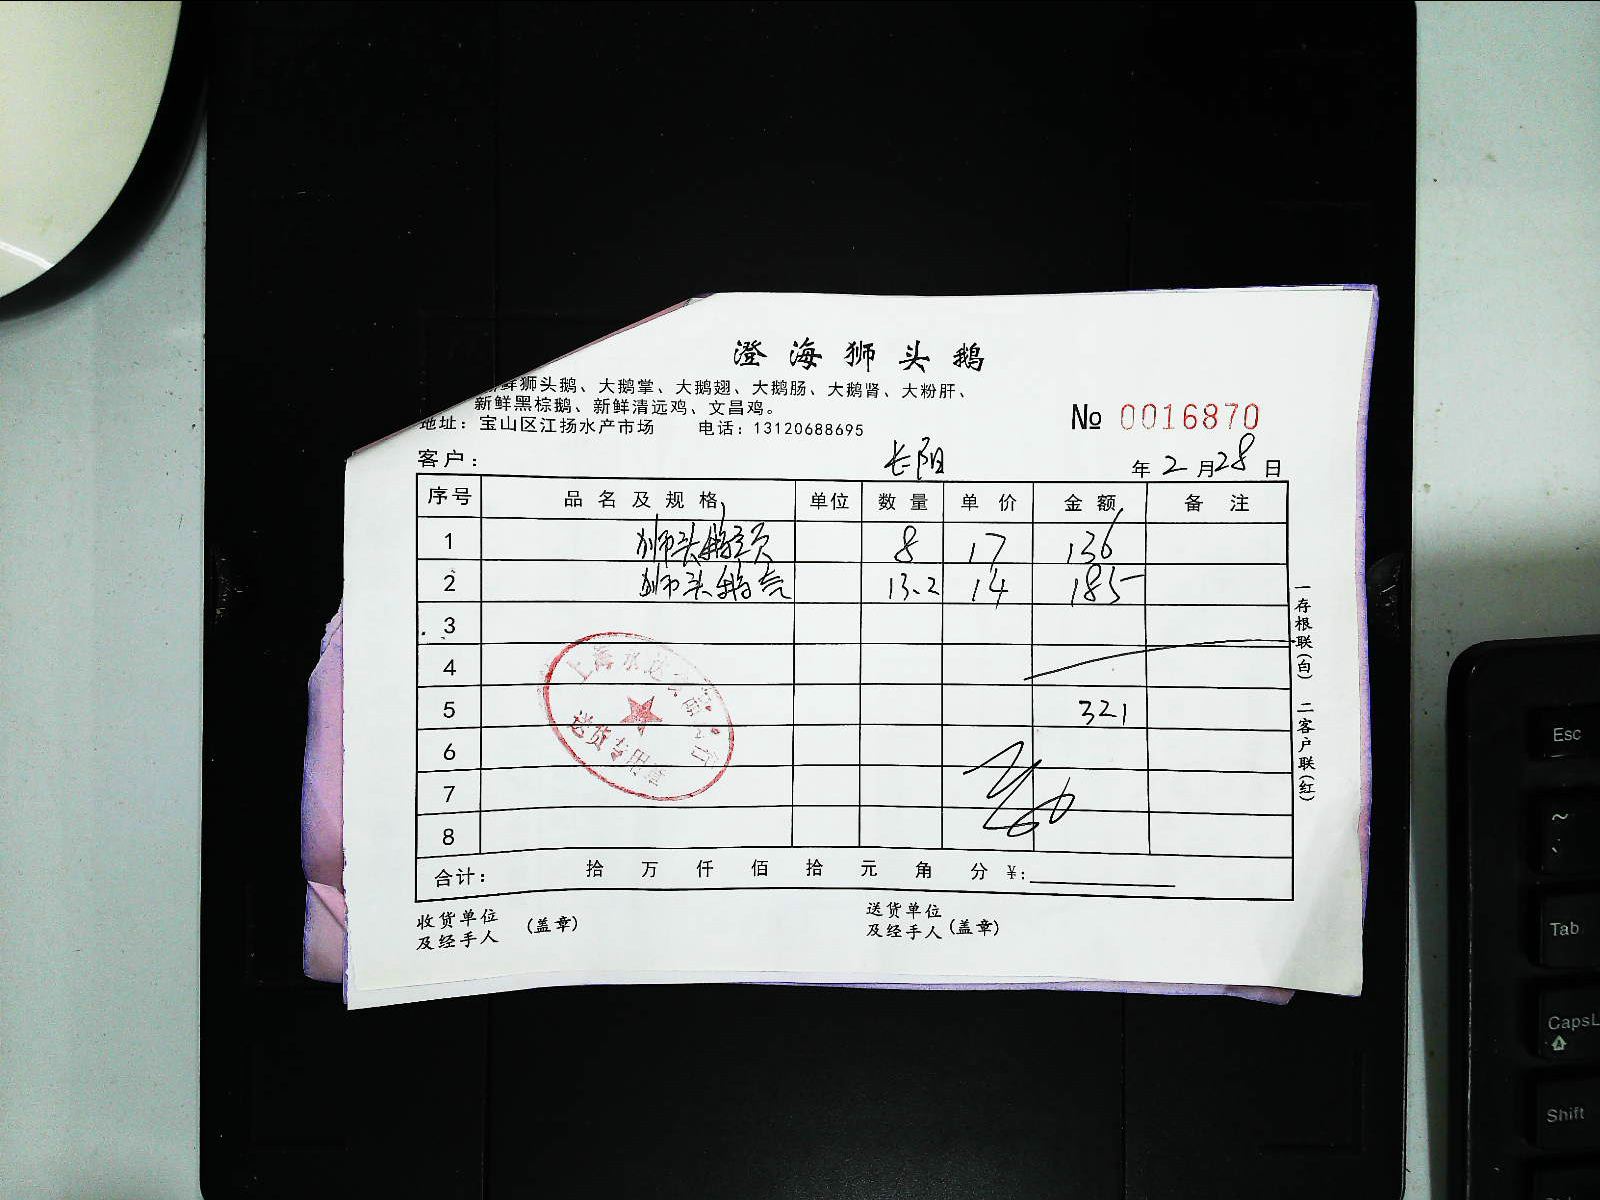 澄海狮头鹅
鲜狮头鹅、大鹅掌、大鹅翅、大鹅肠、大鹅肾、大粉肝、
新鲜黑棕鹅、新鲜清远鸡、文昌鸡。
地址：宝山区江扬水产市场 电话：13120688695
№ 0016870
客户： 长阳
年 2 月 28 日
序号 品名及规格 单位 数量 单价 金额 备注
1 狮头鹅 8 17 136
2 狮头鹅壳 13.2 14 185
3
4
5 321
6
7
8
合计： 拾 万 仟 佰 拾 元 角 分 ¥：
收货单位
及经手人 （盖章）
送货单位
及经手人（盖章）
一存根联（白） 二客户联（红）
上海
送货专用章
Esc
~
Tab
CapsL
Shift